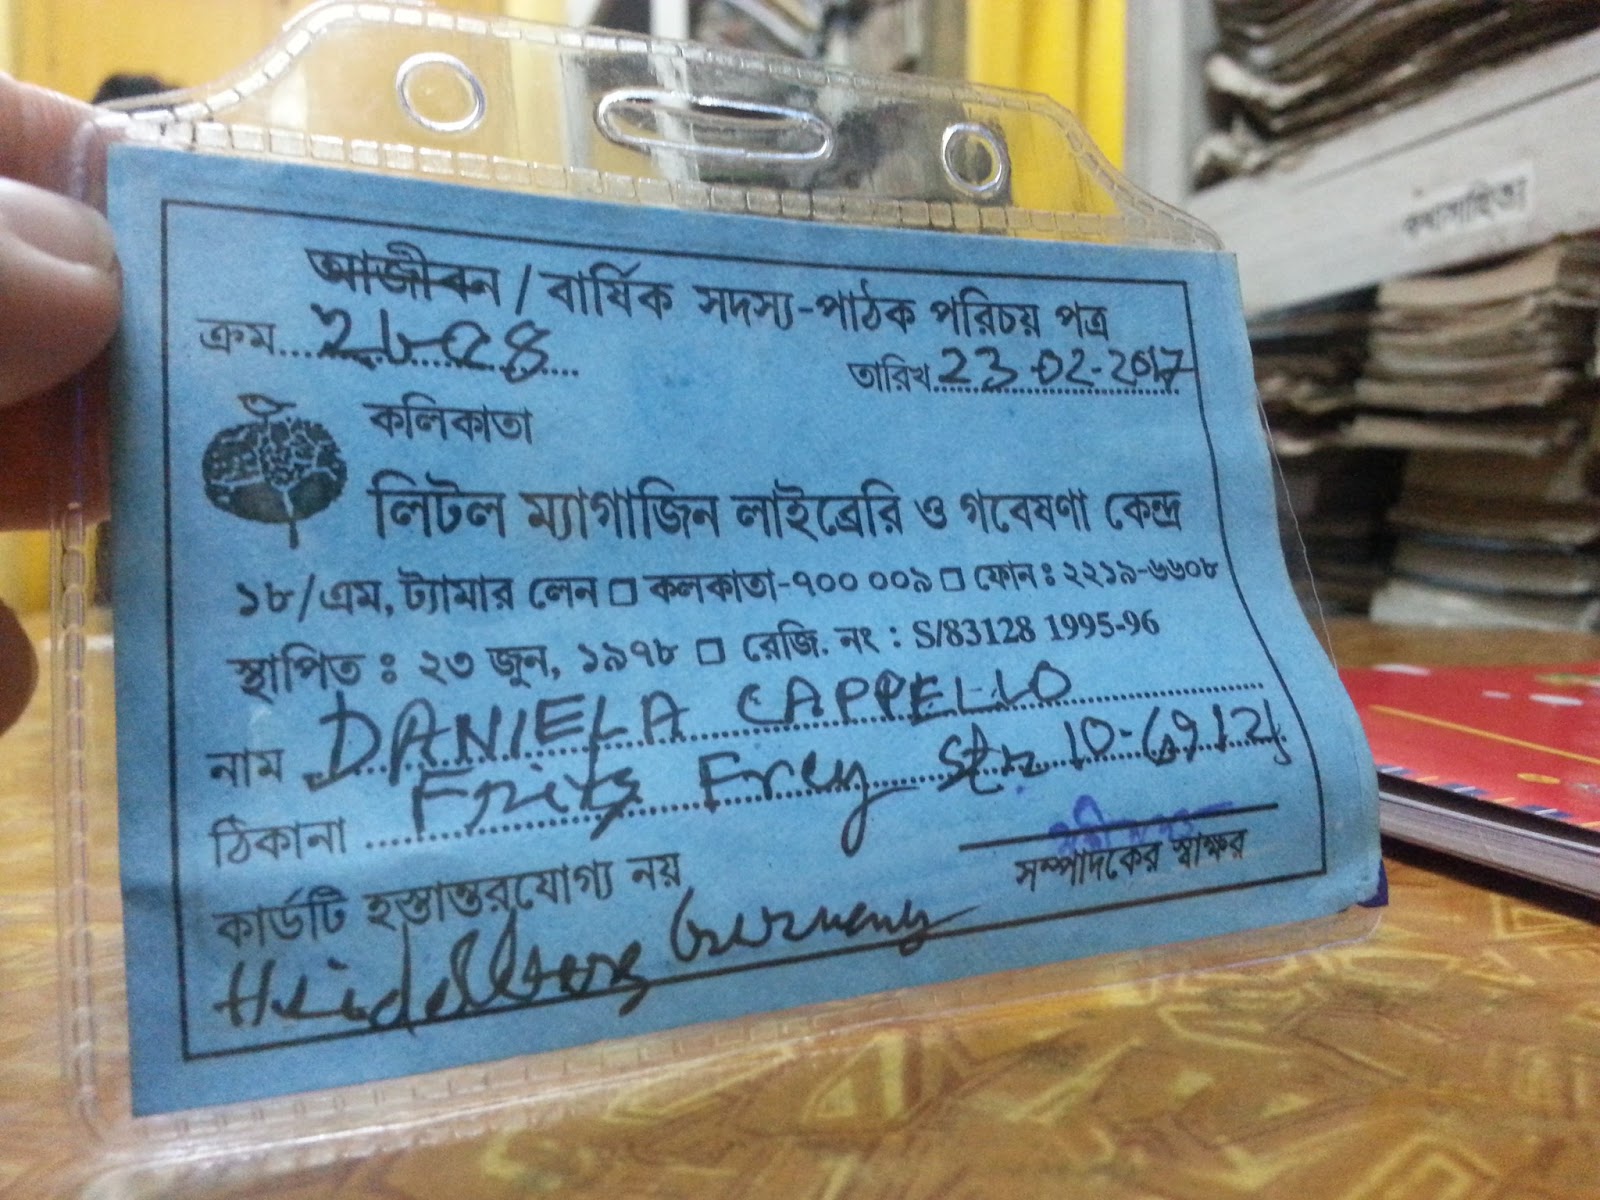 আজীবন / বার্ষিক সদস্য-পাঠক পরিচয় পত্র
ক্রম
তারিখ 23-02-2017
কলিকাতা
লিটল ম্যাগাজিন লাইব্রেরি ও গবেষণা কেন্দ্র
১৮/এম, ট্যামার লেন □ কলকাতা-৭০০ ০০৯ □ ফোন : ২২১৯-৬৬০৮
স্থাপিত : ২৩ জুন, ১৯৭৮ □ রেজি. নং : S/83128 1995-96
নাম DANIELA CAPPELLO
ঠিকানা Fritz Frey Str 10-69121
সম্পাদকের স্বাক্ষর
কার্ডটি হস্তান্তরযোগ্য নয়
Heidelberg Germany
কথাসাহিত্য